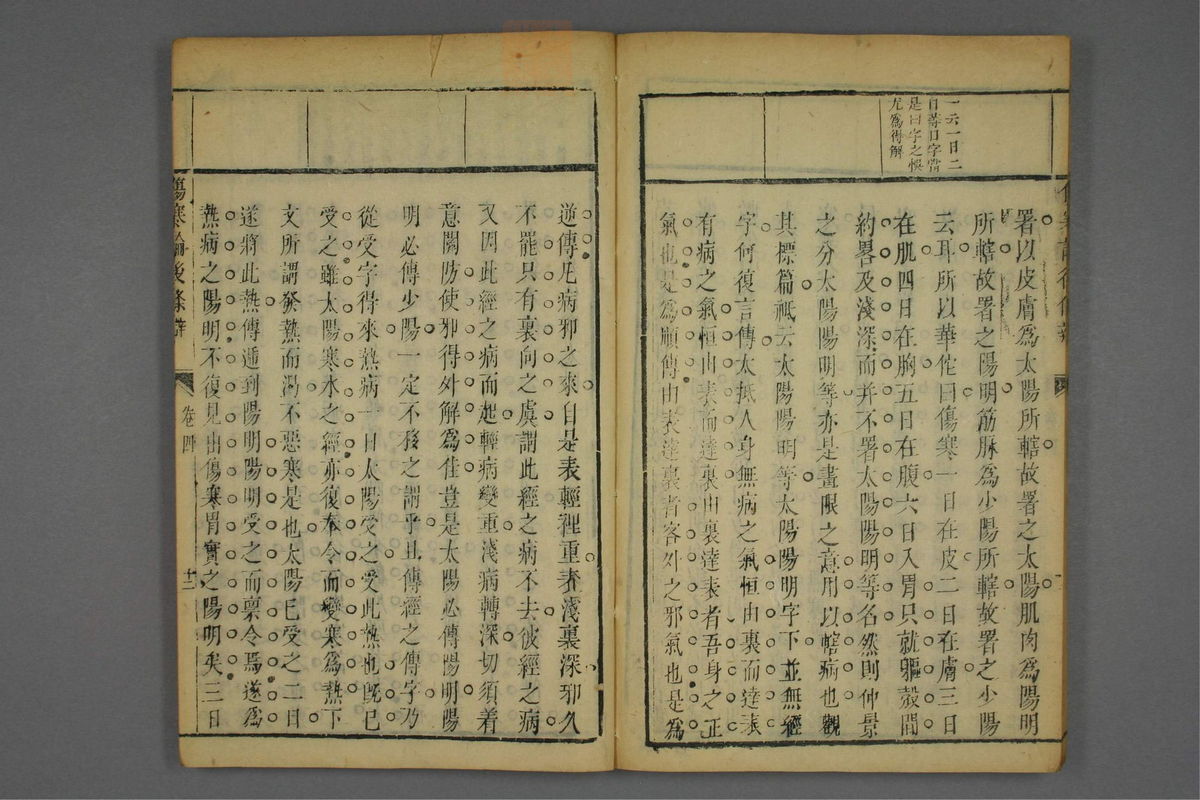 一云一日二
日等日字當
是曰字之悞
尤為得解
署以皮膚為太陽所轄故署之太陽肌肉為陽明
所轄故署之陽明筋脉為少陽所轄故署之少陽
云耳所以華佗曰傷寒一日在皮二日在膚三日
在肌四日在胸五日在腹六日入胃只就軀殼間
約畧及淺深而并不署太陽陽明等名然則仲景
之分太陽陽明等亦是畫限之意用以轄病也觀
其標篇祇云太陽陽明等太陽陽明字下並無經
字何復言傳太抵人身無病之氣恒由裏而達表
有病之氣恒由表而達裏由裏達表者吾身之正
氣也是為順傳由表達裏者客外之邪氣也是為
逆傳凡病邪之來自是表輕裡重表淺裏深邪久
不罷只有裏向之虞謂此經之病不去彼經之病
又因此經之病而起輕病變重淺病轉深切須着
意關防使邪得外解為佳豈是太陽必傳陽明陽
明必傳少陽一定不移之謂乎且傳經之傳字乃
從受字得來熱病一日太陽受之受此熱也既已
受之雖太陽寒水之經亦復奉令而變寒為熱下
文所謂發熱而渴不惡寒是也太陽已受之二日
遂將此熱傳遞到陽明陽明受之而禀令焉遂為
熱病之陽明不復見由傷寒胃實之陽明矣三日
傷寒論後條辨
卷四
十二